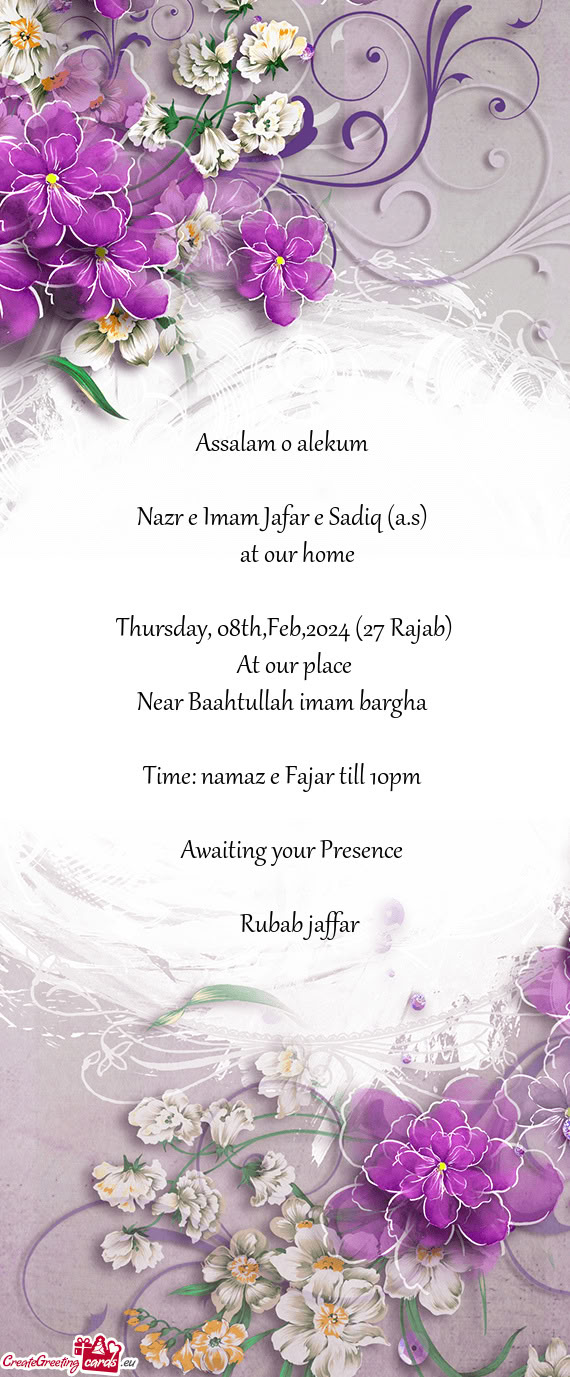 Assalam o alekum
Nazr e Imam Jafar e Sadiq (a.s)
at our home
Thursday, 08th,Feb,2024 (27 Rajab)
At our place
Near Baahtullah imam bargha
Time: namaz e Fajar till 10pm
Awaiting your Presence
Rubab jaffar
CreateGreeting cards .eu